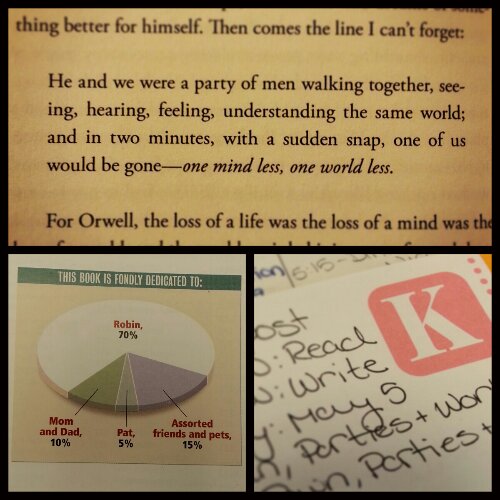 thing better for himself. Then comes the line I can't forget:
He and we were a party of men walking together, see-
ing, hearing, feeling, understanding the same world;
and in two minutes, with a sudden snap, one of us
would be gone—one mind less, one world less.
For Orwell, the loss of a life was the loss of a mind was the
THIS BOOK IS FONDLY DEDICATED TO:
Robin,
70%
Mom
and Dad,
10%
Pat,
5%
Assorted
friends and pets,
15%
5-15
K
ost
: Read
: Write
: May 5
Parties + Wor
Parties +